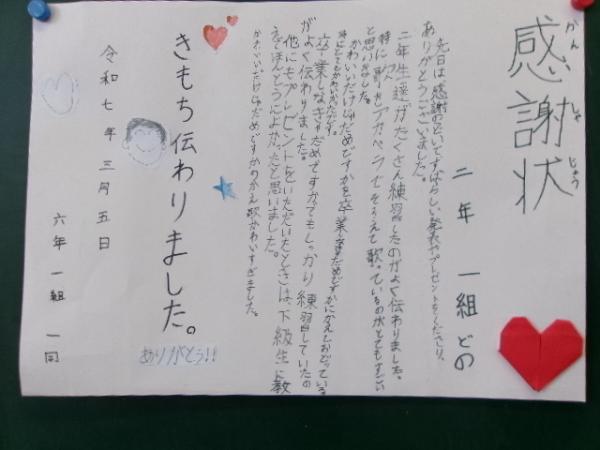 感謝状
かんしゃじょう
二年 一組との
先日は、感謝のつどいですばらしい発表やプレゼントをくださり、
ありがとうございました。
二年生達がたくさん練習したのがよく伝わりました。
特に歌をアカペラでそろえて歌っているのがとてもすごい
と思いました。
かわいいだけじゃだめですかを卒業しなきゃだめですかにかえておどっている
卒業しなきゃだめですかでもしっかり練習していたの
がよく伝わりました。
他にもプレゼントをいただいたときは、下級生に教
えてほんとうによかったと思いました。
かわいいだけじゃだめですかのかえ歌かわいすぎました。
きもち伝わりました。
ありがとう!!
令和七年三月五日
六年一組一同